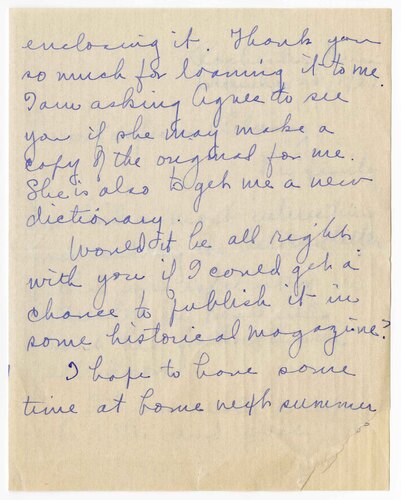 enclosing it. Thank you
so much for loaning it to me.
I am asking Agnes to see
you if she may make a
copy of the original for me.
She is also to get me a new
dictionary.
Would it be all right
with you if I could get a
chance to publish it in
some historical magazine?
I hope to have some
time at home next summer